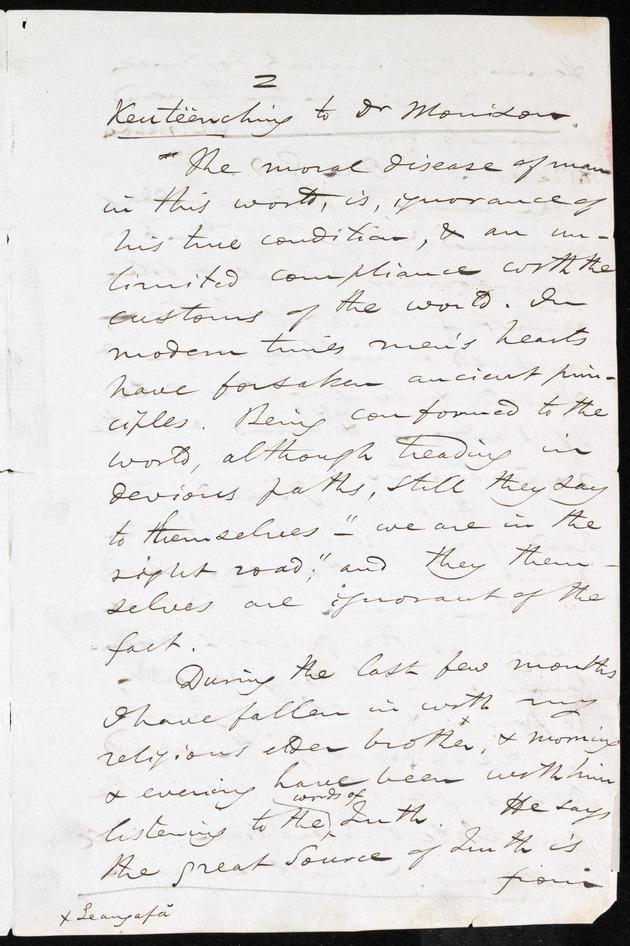 2
Keuteënching to Dr Morrison
" The moral disease of man
in this world, is, ignorance of
his true condition, & an un-
limited compliance with the
customs of the world. In
modern times men's hearts
have forsaken ancient prin-
ciples. Being conformed to the
world, although treading in
devious paths, still they say
to themselves - "we are in the
right road;" and they them-
selves are ignorant of the
fact.
During the last few months
I have fallen in with my
religious elder brother, x & morning
& evening have been with him
listening to the words of Truth. He says
the great Source of Truth is
from
x Leangafă